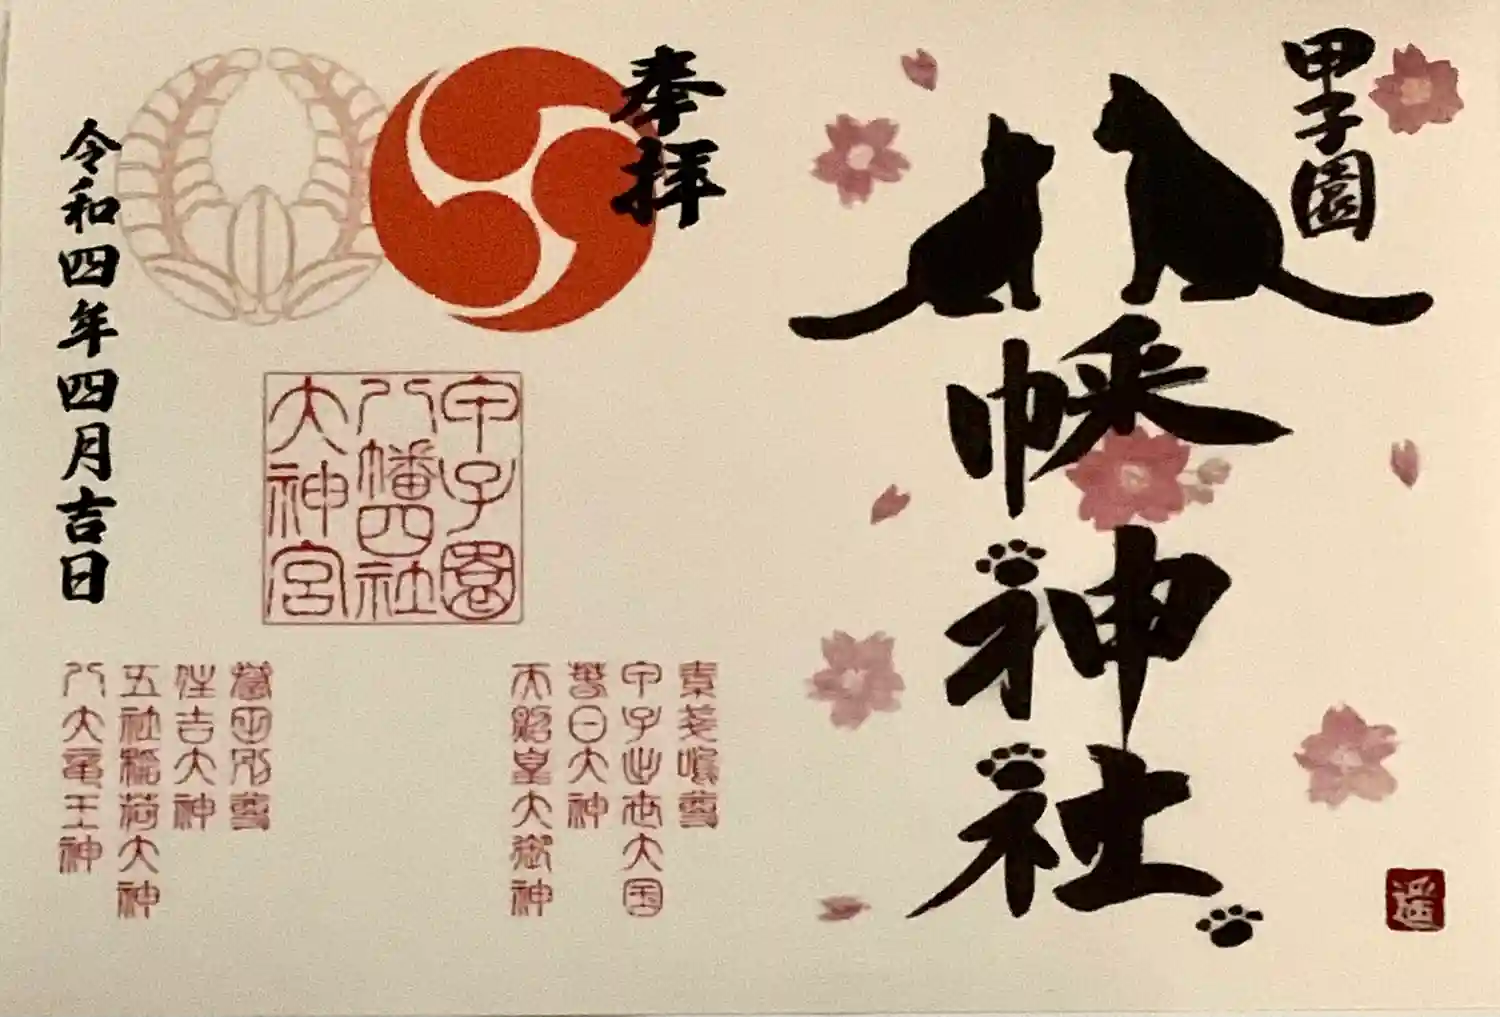 甲子園
幡神社
遥
奉拝
甲子園
八幡四社
大神宮
素戔嗚尊
甲子出世大国
春日大神
天照皇大御神
誉田別尊
住吉大神
五社稲荷大神
八大竜王神
令和四年四月吉日